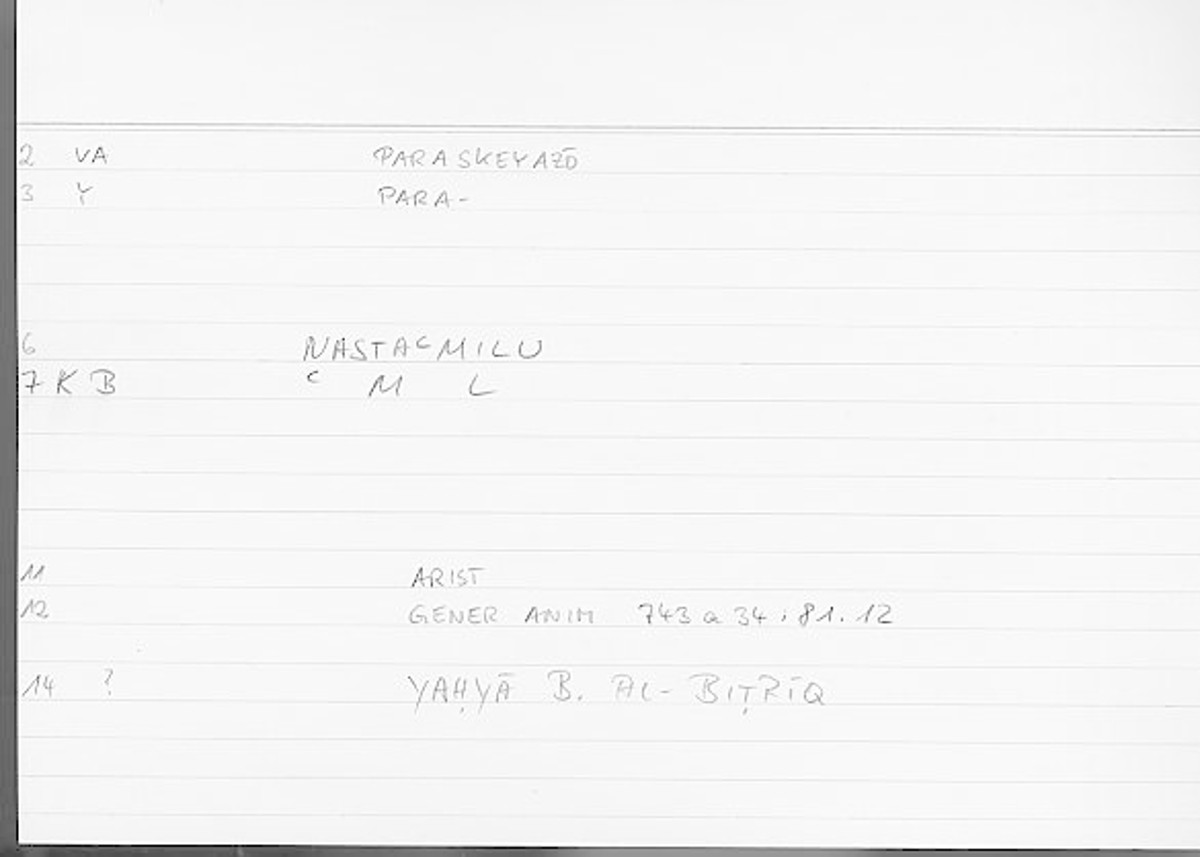 2 VA PARASKEYAZŌ
3 Y PARA-
6 NASTAᶜMILU
7 K B ᶜ M L
11 ARIST
12 GENER ANIM 743 a 34 ; 81. 12
14 ? YAḤYĀ B. AL-BIṬRĪQ